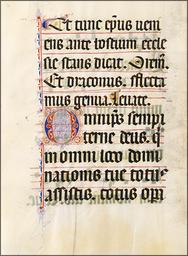 Et tunc ep̄us ueni
ens ante hostium eccle
sie stans dicat. Orem̄.
Et diaconus. fflecta
mus genua. Leuate.
Omnip̄s sempi
terne deus. q̄
in omni loco domi
nationis tue totus
assistis. totus op̄i